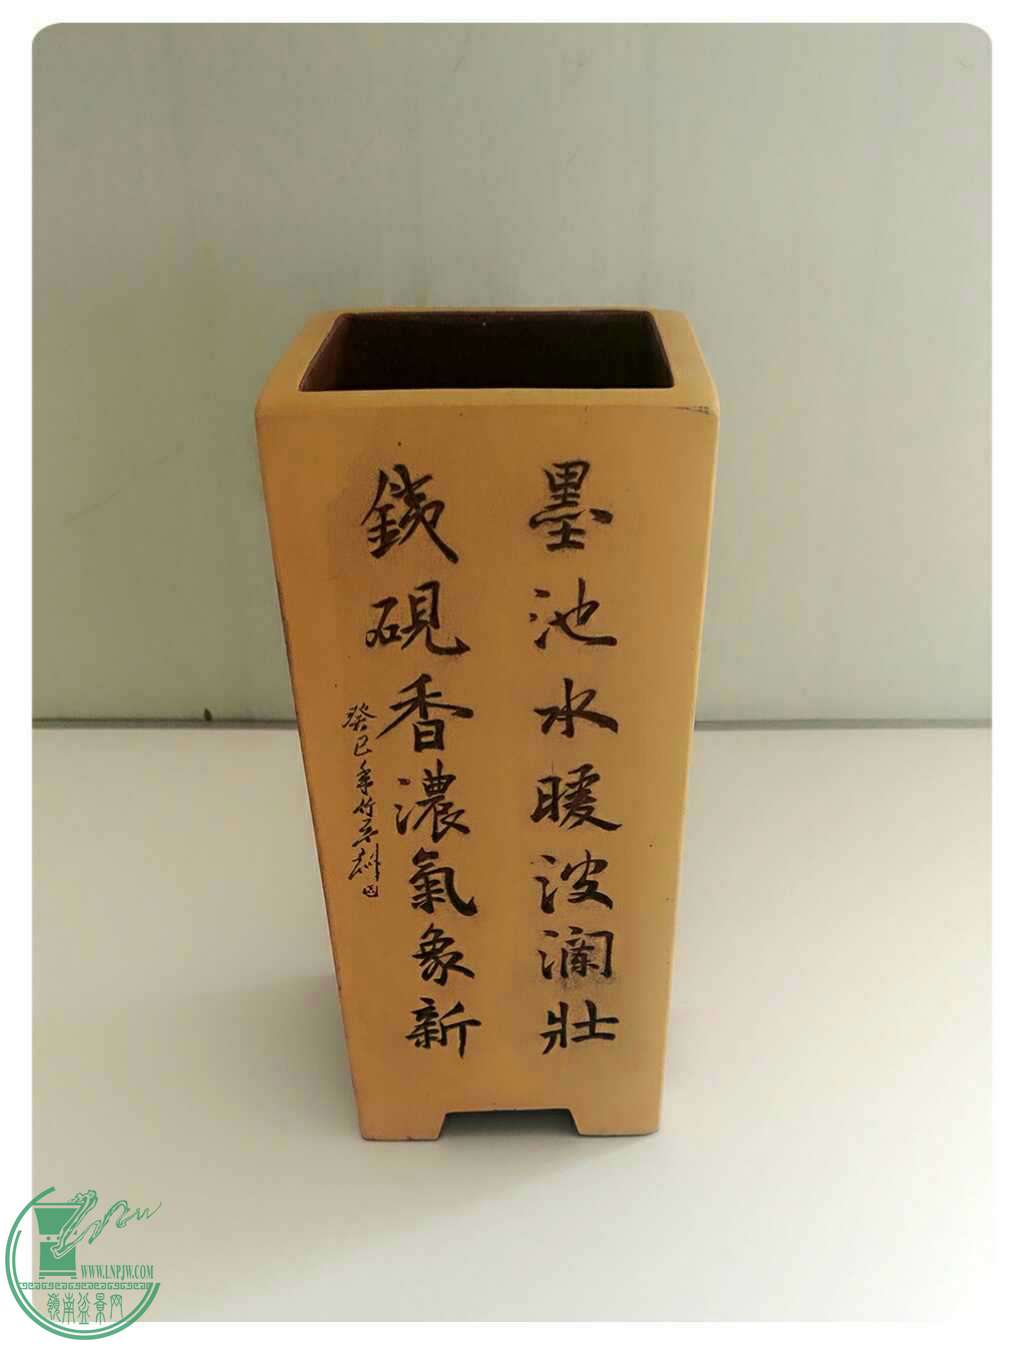 墨池水暖波澜壯
銕硯香濃氣象新
癸巳年竹
WWW.LNPJW.COM
嶺南盆景网